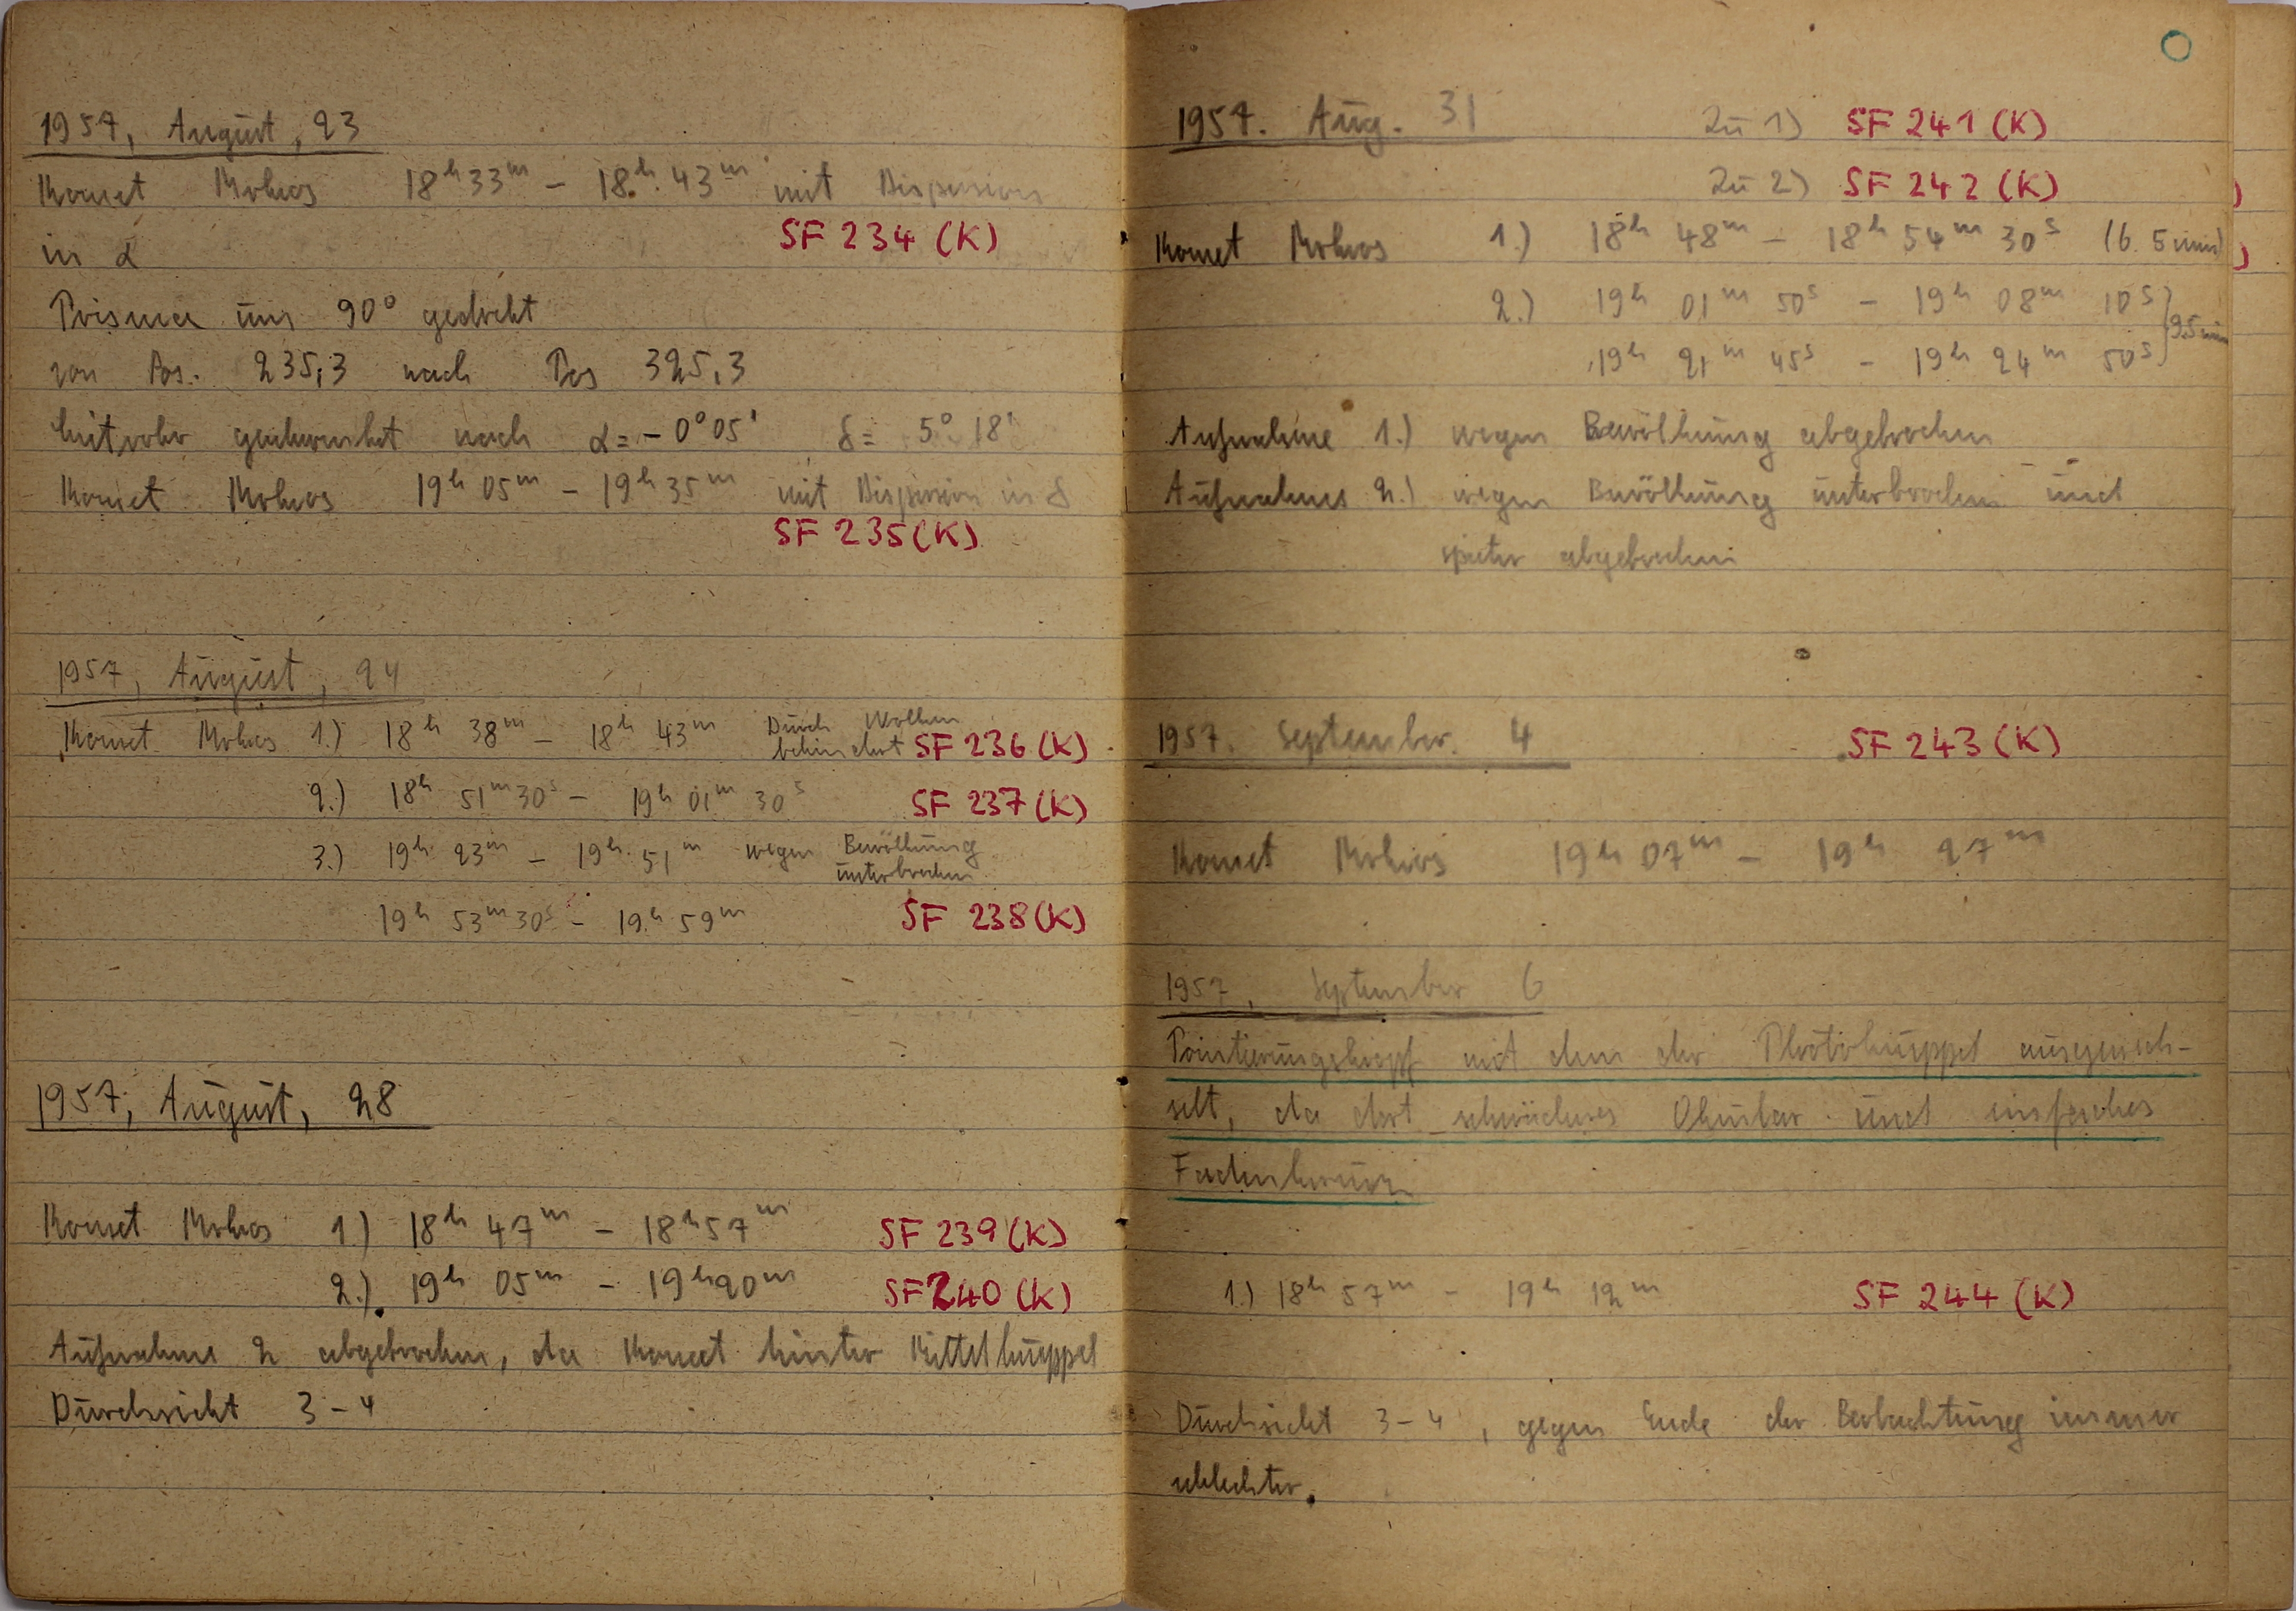 1957, August, 23
Komet Mrkos 18ʰ33ᵐ – 18ʰ43ᵐ mit Dispersion
SF 234 (K)
in α
Prisma um 90° gedreht
von Pos. 235,3 nach Pos 325,3
Leitrohr geschwenkt nach α = – 0°05' δ = 5° 18'
Komet Mrkos 19ʰ05ᵐ – 19ʰ35ᵐ mit Dispersion in δ
SF 235 (K)
1957, August, 24
Komet Mrkos 1.) 18ʰ 38ᵐ – 18ʰ 43ᵐ Durch Wolken
behindert SF 236 (K)
2.) 18ʰ 51ᵐ 30ˢ – 19ʰ 01ᵐ 30ˢ SF 237 (K)
3.) 19ʰ 23ᵐ – 19ʰ 51ᵐ wegen Bewölkung
unterbrochen
19ʰ 53ᵐ 30ˢ – 19ʰ 59ᵐ SF 238 (K)
1957, August, 28
Komet Mrkos 1) 18ʰ 47ᵐ – 18ʰ57ᵐ SF 239 (K)
2.) 19ʰ 05ᵐ – 19ʰ20ᵐ SF 240 (K)
Aufnahme 2 abgebrochen, da Komet hinter Mittelkuppel
Durchsicht 3 – 4
1957. Aug. 31 Zu 1) SF 241 (K)
Zu 2) SF 242 (K)
Komet Mrkos 1.) 18ʰ 48ᵐ – 18ʰ 54ᵐ 30ˢ (6.5 min)
2.) 19ʰ 01ᵐ 50ˢ – 19ʰ 08ᵐ 10ˢ
9.5 min
19ʰ 21ᵐ 45ˢ – 19ʰ 24ᵐ 50ˢ
Aufnahme 1.) wegen Bewölkung abgebrochen
Aufnahme 2.) wegen Bewölkung unterbrochen und
später abgebrochen
1957. September. 4 SF 243 (K)
Komet Mrkos 19ʰ 07ᵐ – 19ʰ 27ᵐ
1957, September 6
Pointierungskopf mit dem der Photokuppel ausgewech-
selt, da dort schwächeres Okular und einfaches
Fadenkreuz
1.) 18ʰ 57ᵐ – 19ʰ 12ᵐ SF 244 (K)
Durchsicht 3 – 4, gegen Ende der Beobachtung immer
schlechter.